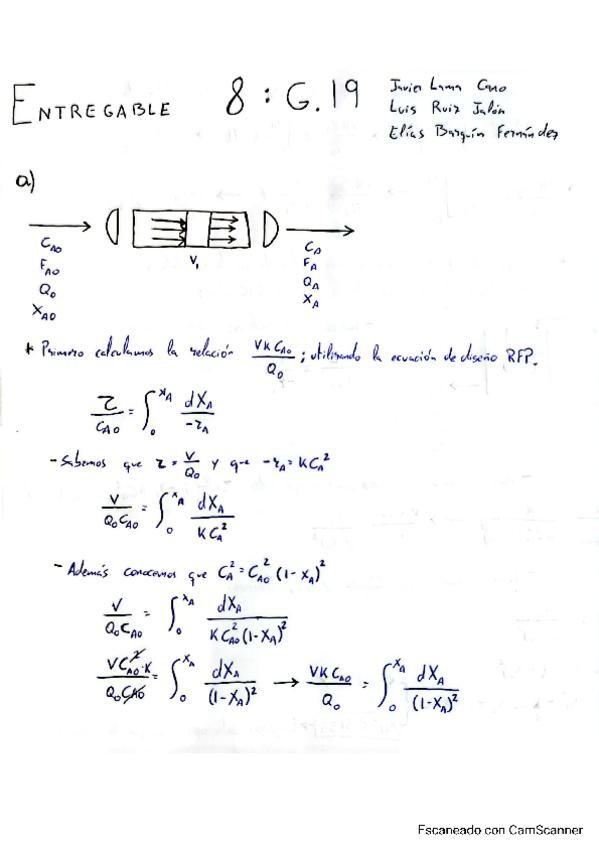 ENTREGABLE 8 : G.19
Javier Lama Cano
Luis Ruiz Jalón
Elías Barquín Fernández
a)
C_A0
F_A0
Q_0
X_A0
V_1
C_A
F_A
Q_A
X_A
* Primero calculamos la relación VKC_A0/Q_0 ; utilizando la ecuación de diseño RFP.
τ/C_A0 = ∫_0^X_A dX_A/-r_A
- Sabemos que τ = V/Q_0 y que -r_A = KC_A^2
V/Q_0C_A0 = ∫_0^X_A dX_A/KC_A^2
- Además conocemos que C_A^2 = C_A0^2 (1-X_A)^2
V/Q_0C_A0 = ∫_0^X_A dX_A/KC_A0^2(1-X_A)^2
VC_A0^2·K/Q_0C_A0 = ∫_0^X_A dX_A/(1-X_A)^2 → VKC_A0/Q_0 = ∫_0^X_A dX_A/(1-X_A)^2
Escaneado con CamScanner